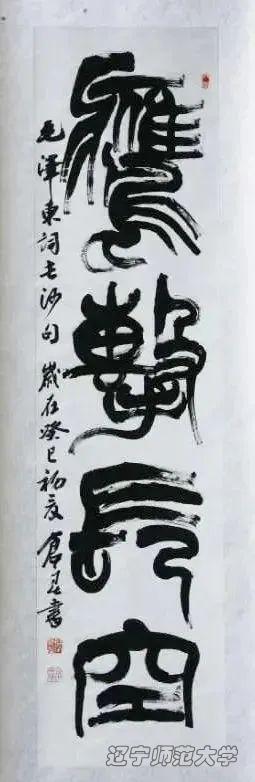 鹰击长空
毛泽东词长沙句 岁在癸巳初夏 书
辽宁师范大学